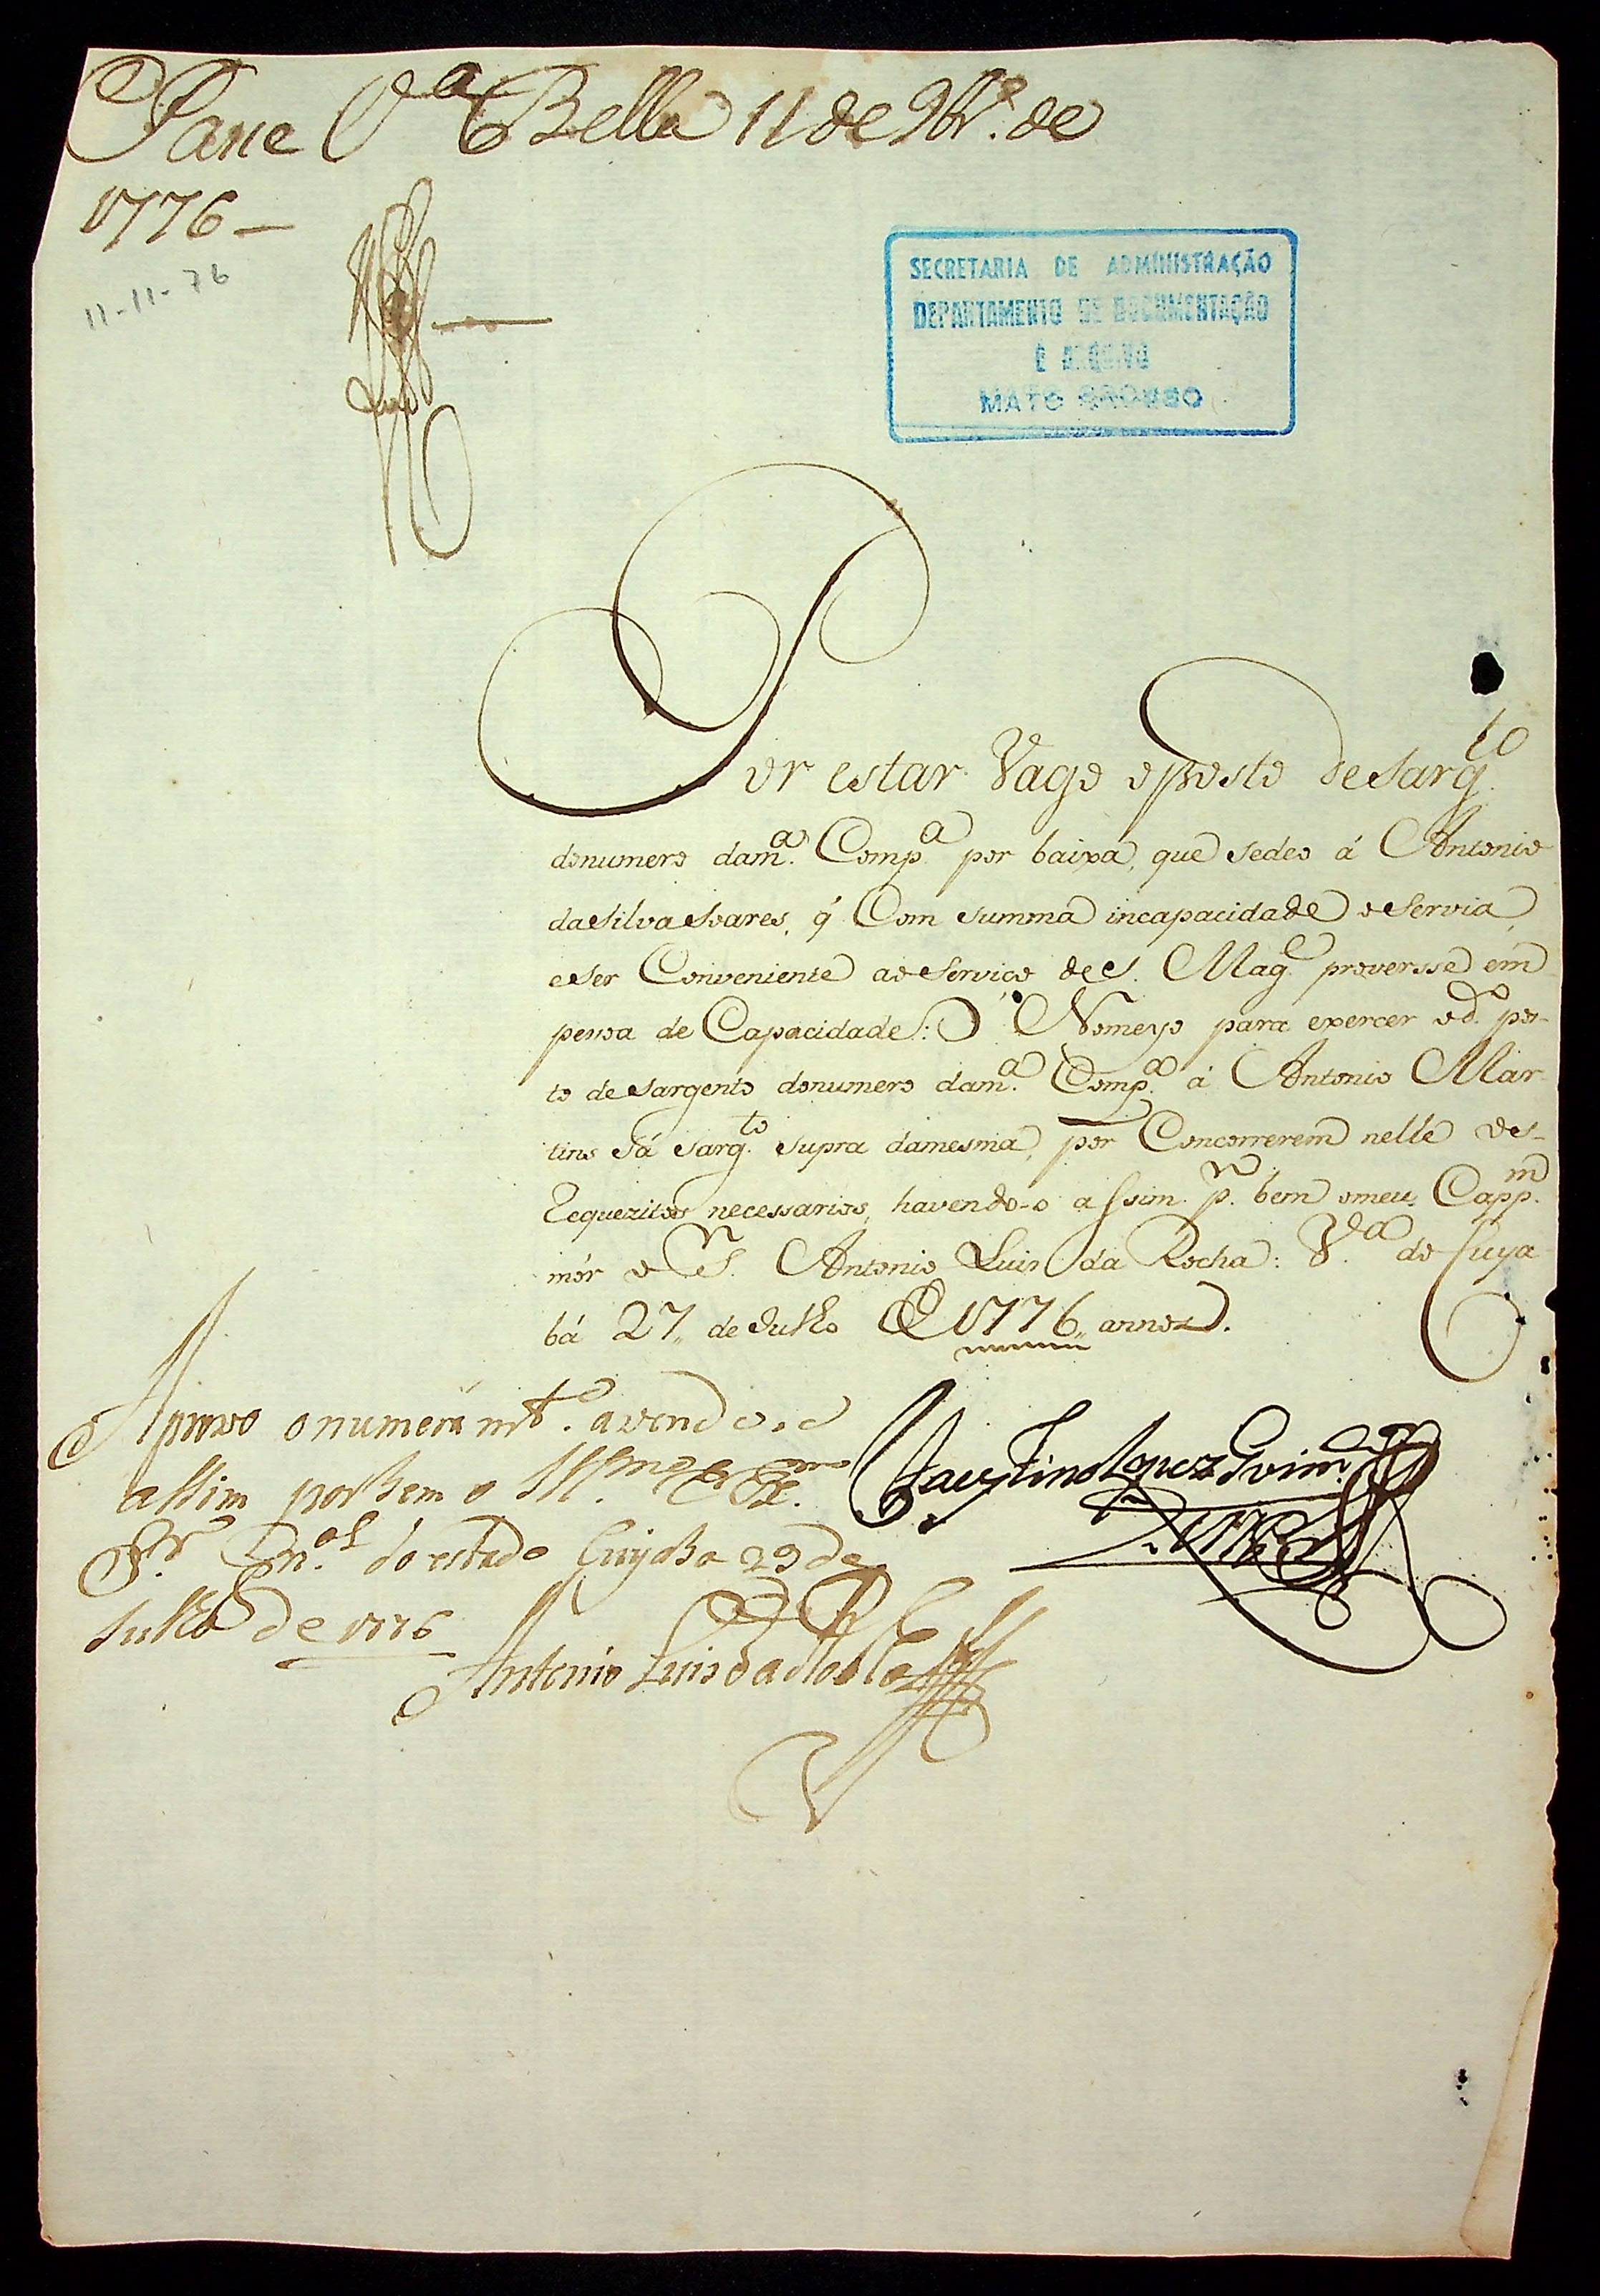 Passe V.ª Bella 11 de 9br.º de
1776 —
11-11-76
SECRETARIA DE ADMINISTRAÇÃO
DEPARTAMENTO DE DOCUMENTAÇÃO
E ARQUIVO
MATO GROSSO
Por estar Vago oposto deSarg.to
donumero dam.ª Comp.ª por baixa, que sedeo á Antonio
daSilvaSoares, q̃ Com summa incapacidade oServia,
eSer Conveniente aoServiço deS. Mag.e proversse em
pessoa de Capacidade: Nomeyo para exercer od.º pos-
to deSargento donumero dam.ª Comp.ª á Antonio Mar
tins Sá Sarg.to supra damesma, por Concorrerem nelle os-
Requezitos necessarios, havendo-o assim p.r bem omeu Capp.m
mór o S.r Antonio Luis da Rocha: V.ª do Cuya
bá 27,, de Julho de 1776,, annos.
Aprovo onumeram.to avendo-o
assim por bem o Ill.mo e Ex.mo
S.r G.n.al do estado Cuyaba 29 de
Julho de 1776
Antonio Luis da Rocha
Faustino Lopez Guim.